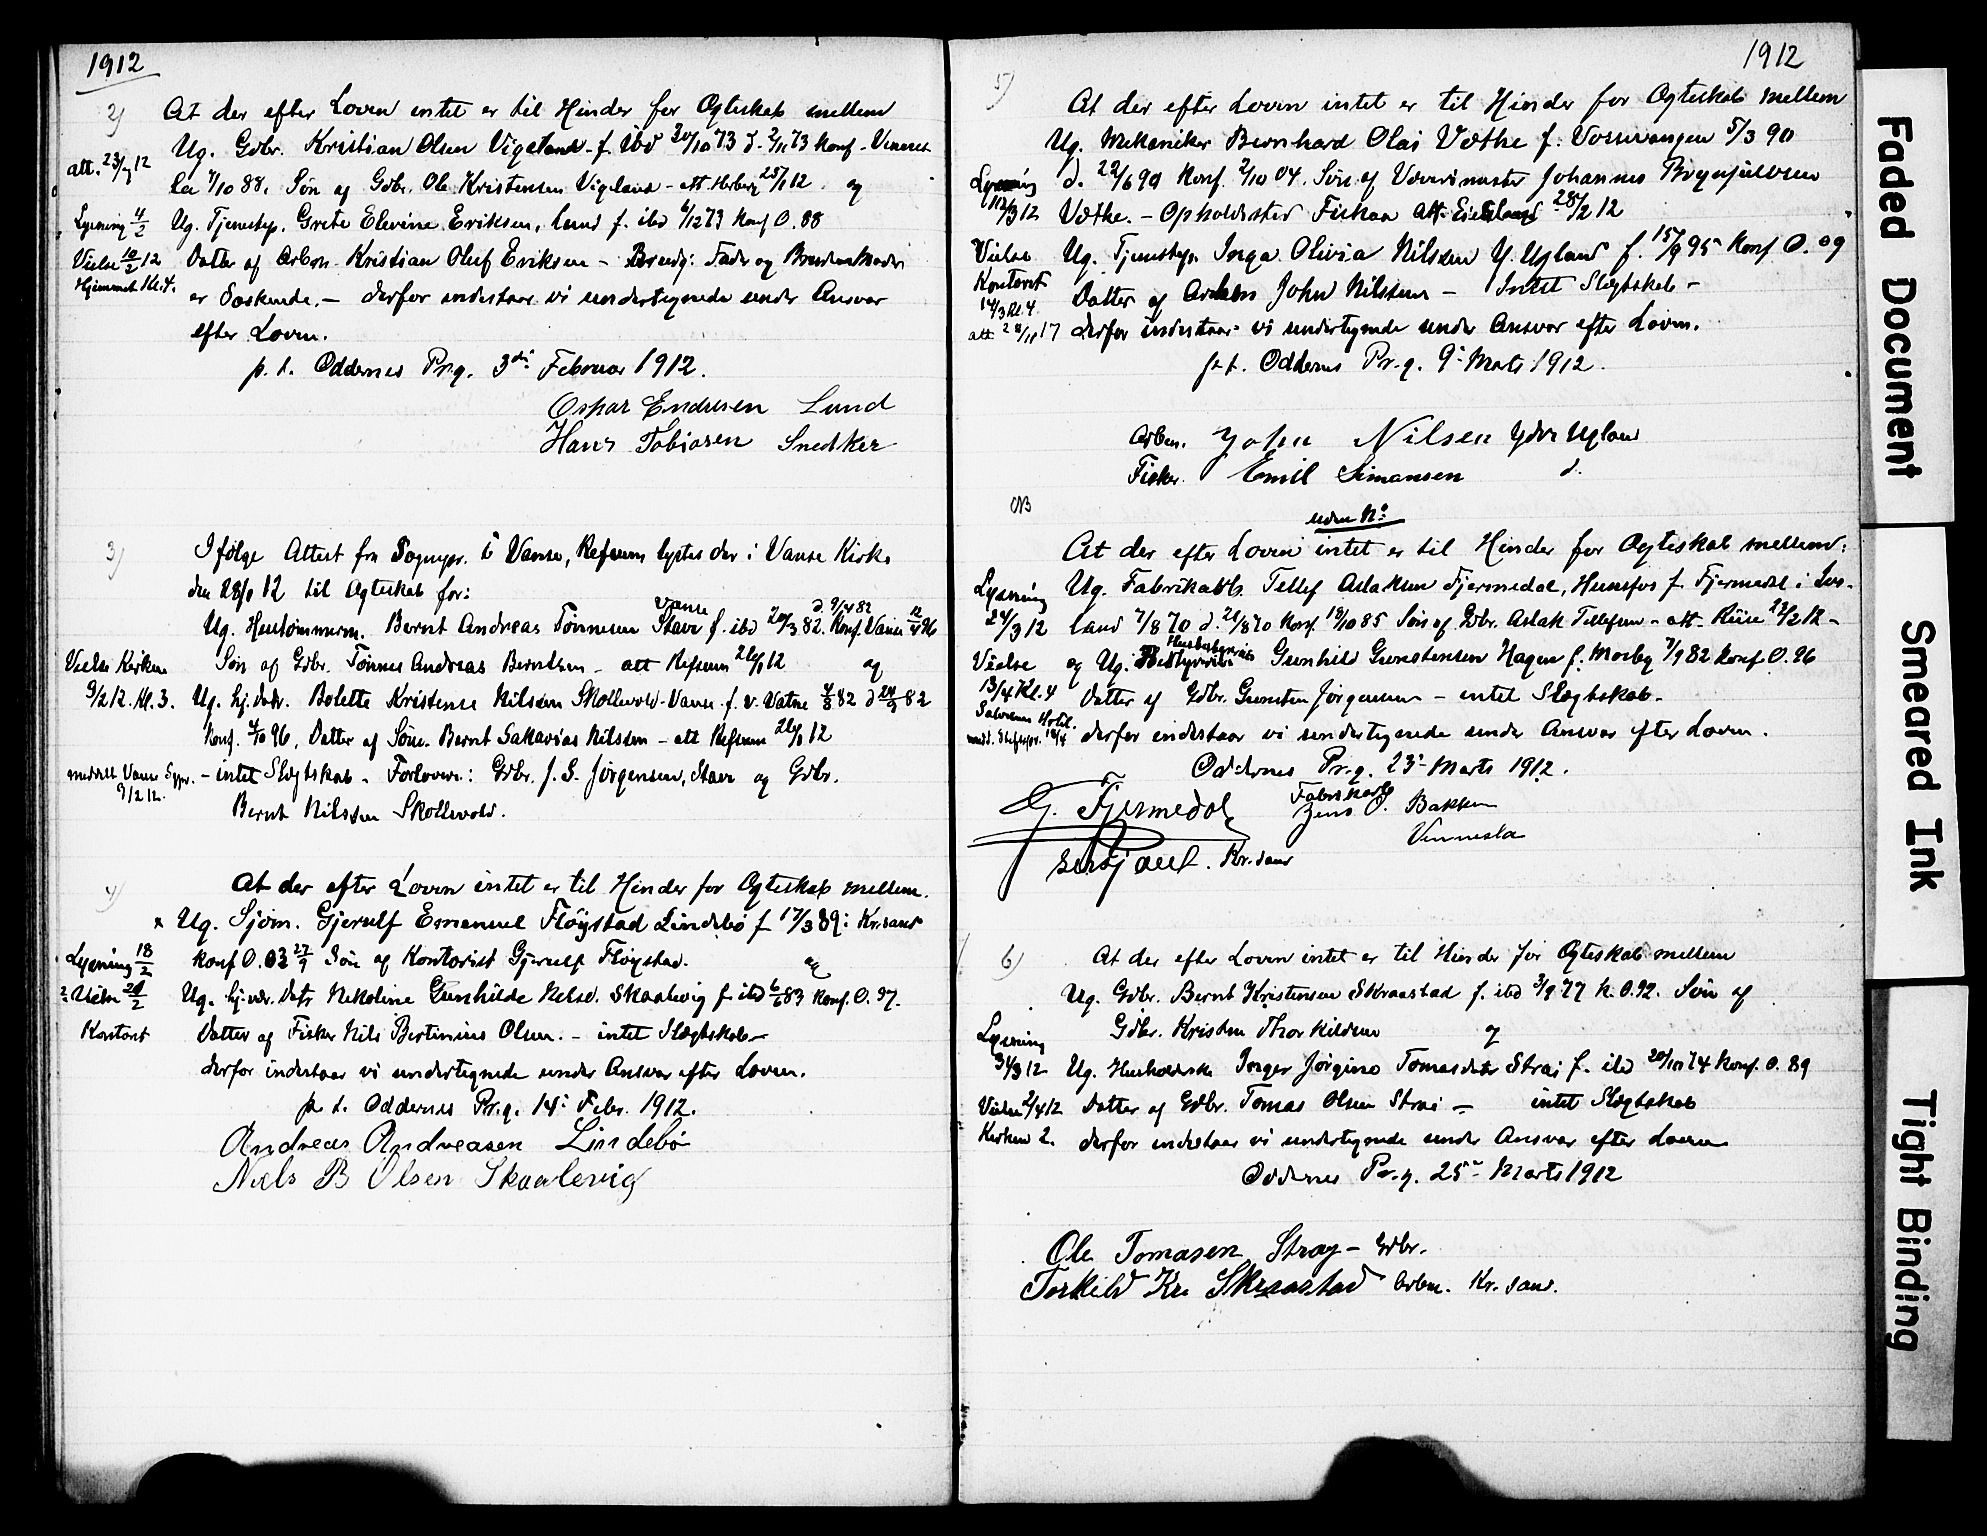 1912
2) At der efter Loven intet er til Hinder for Ægteskab mellem
Ug. Gdbr. Kristian Olsen Vigeland f. ibd 30/10 73 d. 2/11 73 konf. Vennes-
att. 23/1 12
la 7/10 88. Søn af Gdbr. Ole Kristensen Vigeland - att. 25/1 12 og
Lysning 4/2
Ug. Tjenestep. Grete Elevine Eriksen, Lund f. ibd 6/12 73 konf O. 88
Vielse 10/2 12
Datter af Arbm. Kristian Oluf Eriksen - Brudg: Fader og Brudens Moder
Hjemmet Kl. 4.
er Søskende. - derfor indestaar vi undertegnede under Ansvar
efter Loven.
p. t. Oddernes Prg. 3die Februar 1912.
Oskar Endresen Lund
Hans Tobiasen Snedker
3) Ifølge Attest fra Sognepr. i Vanse, Refsum lystes der i Vanse Kirke
den 28/1 12 til Ægteskab for:
Vanse d. 9/4 82
Ug. Hustømmerm. Bernt Andreas Tønnesen Stave f. ibd 20/3 82. Konf. Vanse 12/4 96
Vielse Kirken
Søn af Gdbr. Tønnes Andreas Berntsen - att Refsum 26/1 12 og
9/2 12. Kl. 3.
Ug. hj. datr. Bolette Kristense Nilsen Skollevold - Vanse f. v. Vatne 4/8 82 d 24/9 82
Konf. 4/10 96, Datter af Søm. Bernt Sakarias Nilsen - att Refsum 26/1 12
meddelt Vanse Sgpr. 9/2 12.
- intet Slægtskab - Forlovere: Gdbr. J. S. Jørgensen, Stave og Gdbr.
Bernt Nilsen Skollevold.
4) At der efter Loven intet er til Hinder for Ægteskab mellem.
x Ug. Sjøm. Gjerulf Emanuel Fløystad Lindebø f 17/3 89 i Kr.sand
Lysning 18/2
konf O. 03 27/9 Søn af Kontorist Gjerulf Fløystad. og
Vielse 20/2
Ug. hj.vær. Datr Nekoline Gunhilde Nelsd. Skaalevig f. ibd 6/6 83 konf. O. 97.
Kontoret
Datter af Fisker Nils Bertinius Olsen. - intet Slægtskab -
derfor indestaar vi undertegnede under Ansvar efter Loven.
p. t. Oddernes Pr.g. 14: Febr. 1912.
Andreas Andreasen Lindebø
Niels B Olsen Skaalevig
1912
5) At der efter Loven intet er til Hinder for Ægteskab mellem
Ug. Mekaniker Bernhard Olai Væthe f. Vossevangen 5/3 90
Lysning
d. 22/6 90 Konf. 2/10 04. Søn af Johannes Brynjulvsen
10/3 12
Væthe. - Opholdssted Fiskaa Att. 28/2 12
Vielse
Ug. Tjenestep. Inga Olivia Nilssen Y. Ugland f. 15/9 95 Konf O. 09
Kontoret
14/3 Kl. 4.
Datter af Arbm John Nilssen - Intet Slægtskab -
att 28/11 17
derfor indestaar vi undertegnede under Ansvar efter Loven.
p. t. Oddernes Pr.g. 9: Marts 1912.
Arbm. John Nilsen Ydre Ugland
Fisker. Emil Simonsen d.
NB
uden No
At der efter Loven intet er til Hinder for Ægteskab mellem:
Lysning
Ug. Fabrikarb. Tellef Aslaksen Fjermedal, Hunsfos f. Fjermedal i Ive-
24/3 12
land 7/8 70 d. 21/8 70 Konf. 18/10 85 Søn af Gdbr. Aslak Tellefsen - att. 22/2 12 -
Vielse
og Ug. Husbestyrerinde Gunhild Gunstensen Hagen f. Mosby 7/9 82 konf O. 96
13/4 Kl. 4
Datter af Gdbr. Gunsten Jørgensen - intet Slægtskab.
Salvesens Hotel.
derfor indestaar vi undertegnede under Ansvar efter Loven.
Oddernes Pr.g. 23: Marts 1912.
G. Fjermedal
Fabrikarb. Jens O. Bakken
Vennesla
Kr.sand
6) At der efter Loven intet er til Hinder for Ægteskab mellem
Ug. Gdbr. Bernt Kristensen Skraastad f. ibd 3/9 77 k. O. 92. Søn af
Gdbr. Kristen Thorkildsen og
Lysning
31/3 12
Ug. Husholderske Inger Jørgine Tomasdatr Strai f. ibd 20/10 74 Konf. O. 89
Vielse 2/4 12
Datter af Gdbr. Tomas Olsen Strai - intet Slægtskab
Kirken 2.
derfor indestaar vi undertegnede under Ansvar efter Loven
Oddernes Pr.g. 25: Marts 1912
Ole Tomasen Stray - Gdbr.
Torkild Kr. Skraastad Arbm. Kr. sand.
Faded Document
Smeared Ink
Tight Binding